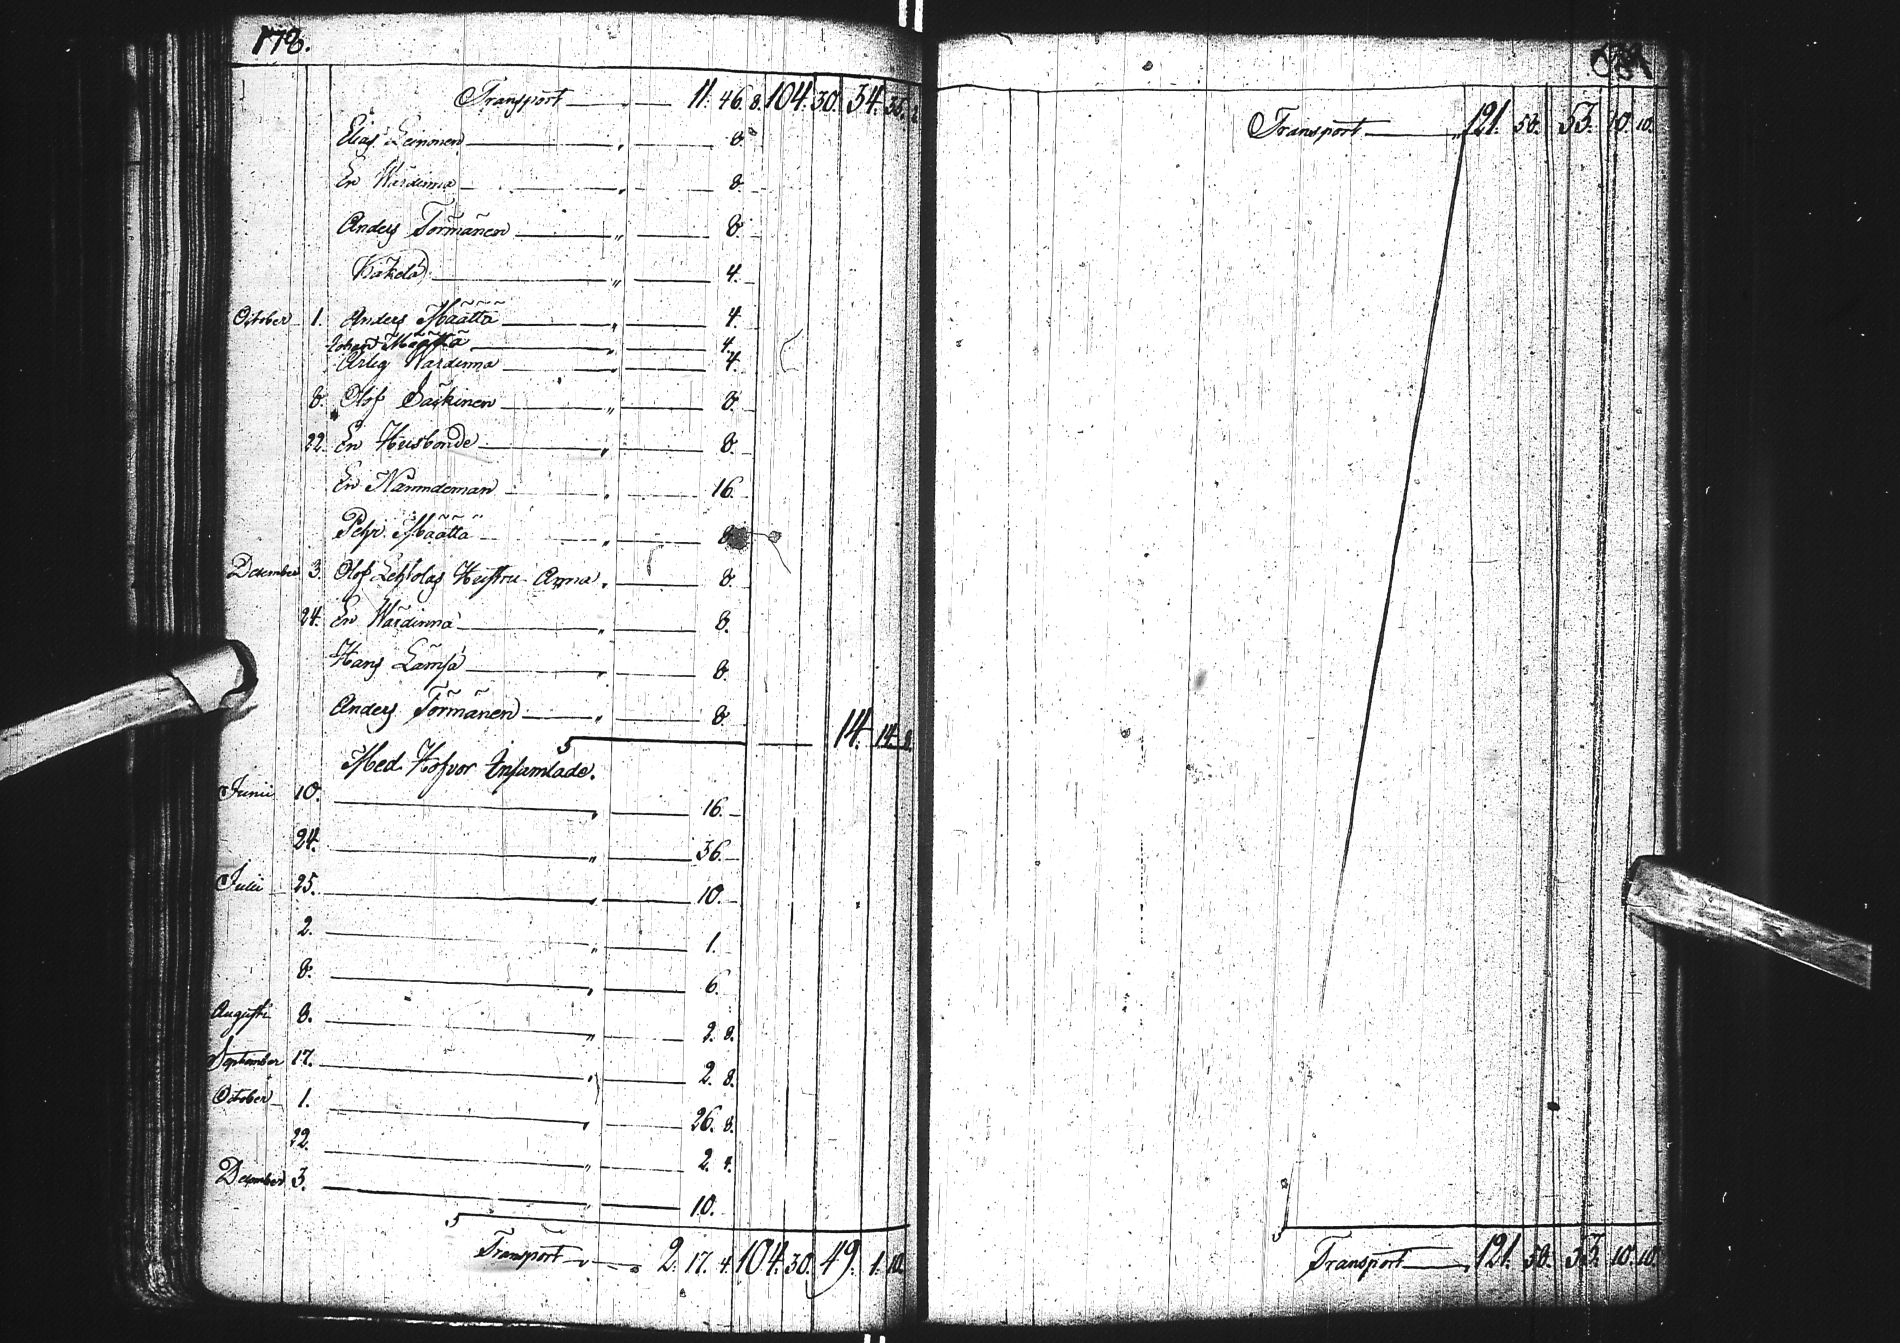 178.
Transport — " — 11. 46. 8. 104. 30. 34. 35. 2
Elias Leinonen — " — 8.
En Wärdinna — " — 8.
Anders Törmänen — " — 8.
— " — 4.
October 1. Anders Määttä — " — 4.
Johan Määttä — " — 4.
Ärlig Wärdinna — " — 4.
8. Olof Säskinen — " — 8.
22. En Husbonde — " — 8.
En Nämndeman — " — 16.
Pehr Määttä — " — 8.
December 3. Olof Lehtolas Hustru Anna " — 8.
24. En Wärdinna — " — 8.
Hans Lämsä — " — 8.
Anders Törmänen — " — 8.
14. 14. 8.
Med Hofvor Insamlade.
Junii 10. — " — 16.
24. — " — 36.
Julii 25. — " — 10.
2. — " — 1.
8. — " — 6.
Augusti 8. — " — 2. 8.
September 17. — " — 2. 8.
October 1. — " — 26. 8.
22. — " — 2. 4.
December 3. — " — 10.
Transport — " — 2. 17. 4. 104. 30. 49. 1. 10.
Transport — " 121. 58. 53. 10. 10.
Transport — " 121. 58. 53. 10. 10.